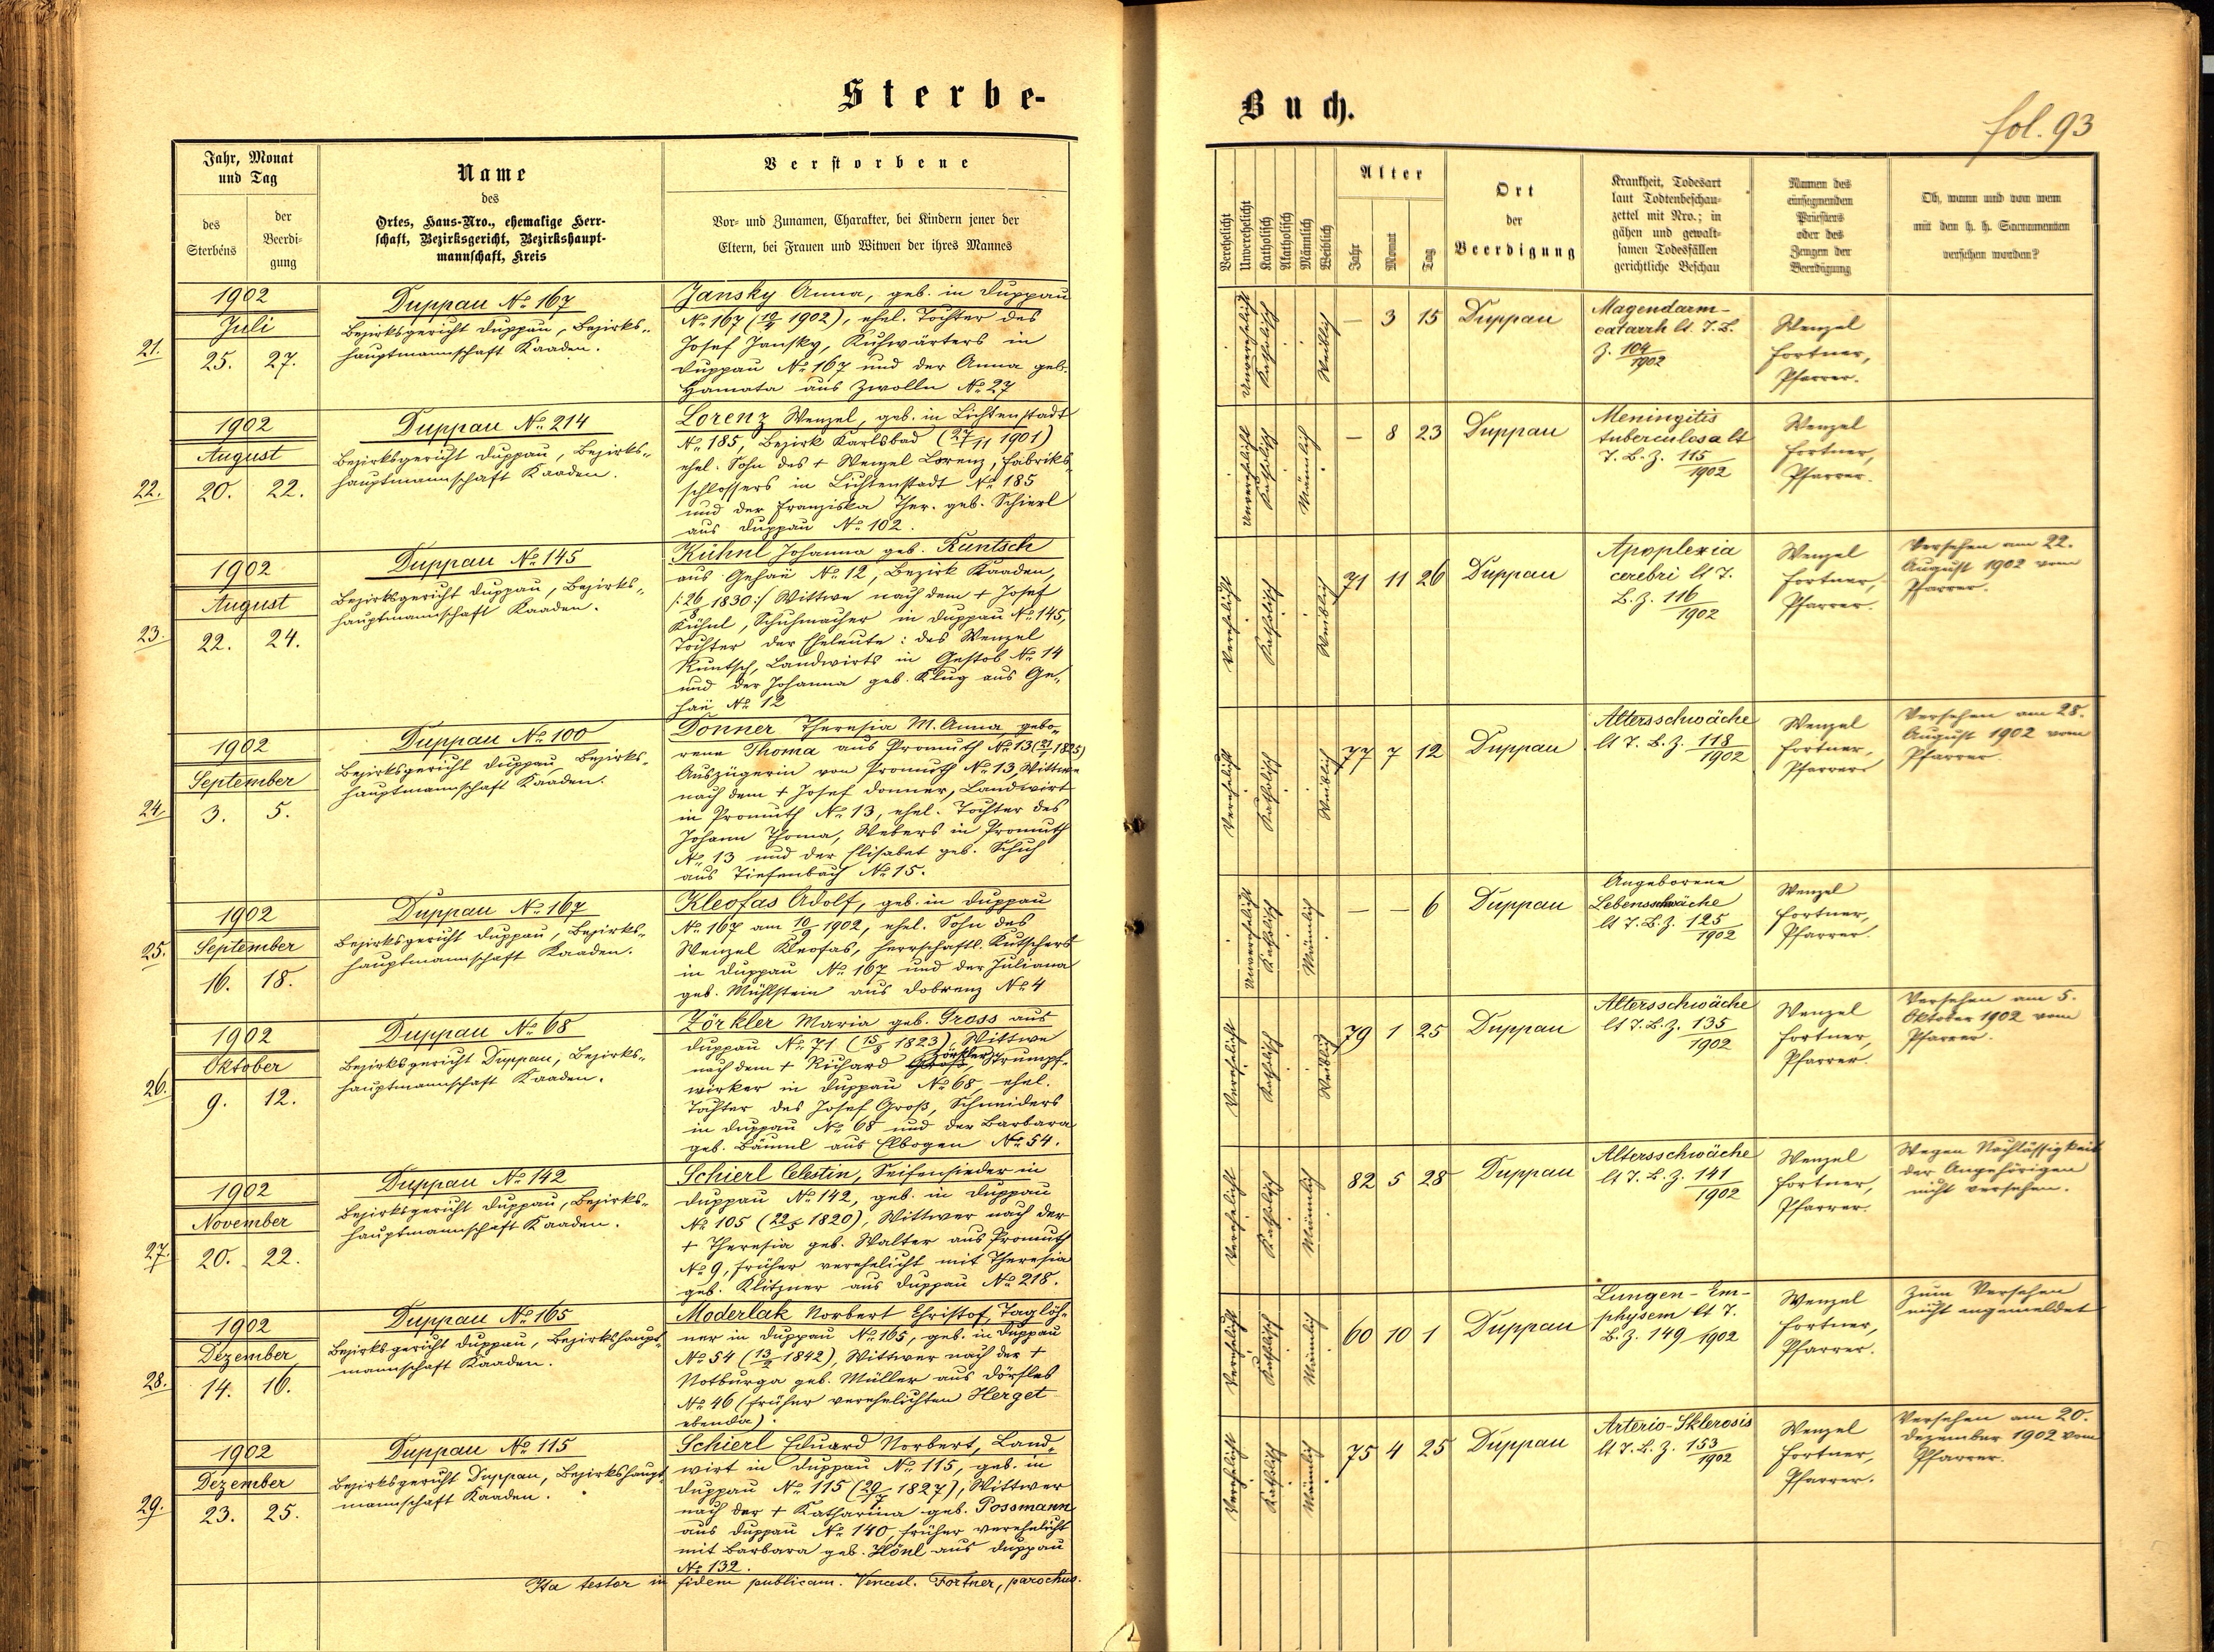 Sterbe-
Jahr, Monat
und Tag
des
Sterbens
der
Beerdi-
gung
Name
des
Ortes, Haus-Nro., ehemalige Herr-
schaft, Bezirksgericht, Bezirkshaupt-
mannschaft, Kreis
Verstorbene
Vor- und Zunamen, Charakter, bei Kindern jener der
Eltern, bei Frauen und Witwen der ihres Mannes
21.
1902
Juli
25. 27.
Duppau № 167
Bezirksgericht Duppau, Bezirks-
hauptmannschaft Kaaden.
Jansky Anna, geb. in Duppau
№ 167 (10/4 1902), ehel. Tochter des
Josef Jansky, Kuhwärters in
Duppau № 167 und der Anna geb.
Hamata aus Zwolln № 27
22.
1902
August
20. 22.
Duppau № 214
Bezirksgericht Duppau, Bezirks-
hauptmannschaft Kaaden.
Lorenz Wenzel, geb. in Lichtenstadt
№ 185, Bezirk Karlsbad (27/11 1901)
ehel. Sohn des + Wenzel Lorenz, Fabriks-
schlossers in Lichtenstadt № 185
und der Franziska Ther. geb. Schierl
aus Duppau № 102.
23.
1902
August
22. 24.
Duppau № 145
Bezirksgericht Duppau, Bezirks-
hauptmannschaft Kaaden.
Kühnl Johanna geb. Runtsch
aus Gehaü № 12, Bezirk Kaaden,
/:26/8 1830:/ Wittwe nach dem + Josef
Kühnl, Schuhmacher in Duppau № 145,
Tochter der Eheleute: des Wenzel
Runtsch, Landwirts in Gestob № 14
und der Johanna geb. Klug aus Ge-
haü № 12
24.
1902
September
3. 5.
Duppau № 100
Bezirksgericht Duppau, Bezirks-
hauptmannschaft Kaaden.
Donner Theresia M. Anna, gebo-
rene Thoma aus Promuth № 13 (21/1 1825)
Auszügerin von Promuth № 13, Wittwe
nach dem + Josef Donner, Landwirt
in Promuth № 13, ehel. Tochter des
Johann Thoma, Webers in Promuth
№ 13 und der Elisabet geb. Schuh
aus Tiefenbach № 15.
25.
1902
September
16. 18.
Duppau № 167
Bezirksgericht Duppau, Bezirks-
hauptmannschaft Kaaden.
Kleofas Adolf, geb. in Duppau
№ 167 am 10/9 1902, ehel. Sohn des
Wenzel Kleofas, herrschaftl. Kutschers
in Duppau № 167 und der Juliana
geb. Mühlstein aus Dobrenz № 4
26.
1902
Oktober
9. 12.
Duppau № 68
Bezirksgericht Duppau, Bezirks-
hauptmannschaft Kaaden.
Zörkler Maria geb. Gross aus
Duppau № 71 (15/8 1823), Wittwe
nach dem + Richard Groß Zörkler, Strumpf-
wirker in Duppau № 68, ehel.
Tochter des Josef Groß, Schneiders
in Duppau № 68 und der Barbara
geb. Bäuml aus Elbogen № 54.
27.
1902
November
20. 22.
Duppau № 142
Bezirksgericht Duppau, Bezirks-
hauptmannschaft Kaaden.
Schierl Celestin, Seifensieder in
Duppau № 142, geb. in Duppau
№ 105 (22/5 1820), Wittwer nach der
+ Theresia geb. Walter aus Promuth
№ 9, früher verehelicht mit Theresia
geb. Klitzner aus Duppau № 218.
28.
1902
Dezember
14. 16.
Duppau № 165
Bezirksgericht Duppau, Bezirkshaupt-
mannschaft Kaaden.
Moderlak Norbert Christof, Taglöh-
ner in Duppau № 165, geb. in Duppau
№ 54 (13/2 1842), Wittwer nach der +
Notburga geb. Müller aus Dörfles
№ 46 (früher verehelichten Herget
ebenda).
29.
1902
Dezember
23. 25.
Duppau № 115
Bezirksgericht Duppau, Bezirkshaupt-
mannschaft Kaaden.
Schierl Eduard Norbert, Land-
wirt in Duppau № 115, geb. in
Duppau № 115 (29/7 1827), Wittwer
nach der + Katharina geb. Possmann
aus Duppau № 140, früher verehelicht
mit Barbara geb. Hönl aus Duppau
№ 132.
Ita testor in fidem publicam. Vencesl. Fortner, parochus.
Buch.
fol. 93
Verehelicht
Unverehelicht
Katholisch
Akatholisch
Männlich
Weiblich
Alter
Jahr
Monat
Tag
Ort
der
Beerdigung
Krankheit, Todesart
laut Todtenbeschau-
zettel mit Nro.; in
gähen und gewalt-
samen Todesfällen
gerichtliche Beschau
Namen des
einsegnenden
Priesters
oder des
Zeugen der
Beerdigung
Ob, wann und von wem
mit den h. h. Sacramenten
versehen worden?
Unverehelicht Katholisch Weiblich
— 3 15 Duppau
Magendarm-
catarrh lt. T. B.
Z. 104/1902
Wenzel
Fortner,
Pfarrer.
Unverehelicht Katholisch Männlich
— 8 23 Duppau
Meningitis
tuberculosa lt
T. B. Z. 115/1902
Wenzel
Fortner,
Pfarrer.
Verehelicht Katholisch Weiblich
71 11 26 Duppau
Apoplexia
cerebri lt T.
B. Z. 116/1902
Wenzel
Fortner,
Pfarrer.
Versehen am 22.
August 1902 vom
Pfarrer.
Verehelicht Katholisch Weiblich
77 7 12 Duppau
Altersschwäche
lt T. B. Z. 118/1902
Wenzel
Fortner,
Pfarrer
Versehen am 28.
August 1902 vom
Pfarrer.
Unverehelicht Katholisch Männlich
— — 6 Duppau
Angeborene
Lebensschwäche
lt T. B. Z. 125/1902
Wenzel
Fortner,
Pfarrer.
Verehelicht Katholisch Weiblich
79 1 25 Duppau
Altersschwäche
lt T. B. Z. 135/1902
Wenzel
Fortner,
Pfarrer.
Versehen am 5.
Oktober 1902 vom
Pfarrer.
Verehelicht Katholisch Männlich
82 5 28 Duppau
Altersschwäche
lt T. B. Z. 141/1902
Wenzel
Fortner,
Pfarrer.
Wegen Nachlässigkeit
der Angehörigen
nicht versehen.
Verehelicht Katholisch Männlich
60 10 1 Duppau
Lungen-Em-
physem lt T.
B. Z. 149/1902
Wenzel
Fortner,
Pfarrer.
Zum Versehen
nicht angemeldet
Verehelicht Katholisch Männlich
75 4 25 Duppau
Arterio-Sklerosis
lt T. B. Z. 153/1902
Wenzel
Fortner,
Pfarrer.
Versehen am 20.
Dezember 1902 vom
Pfarrer.